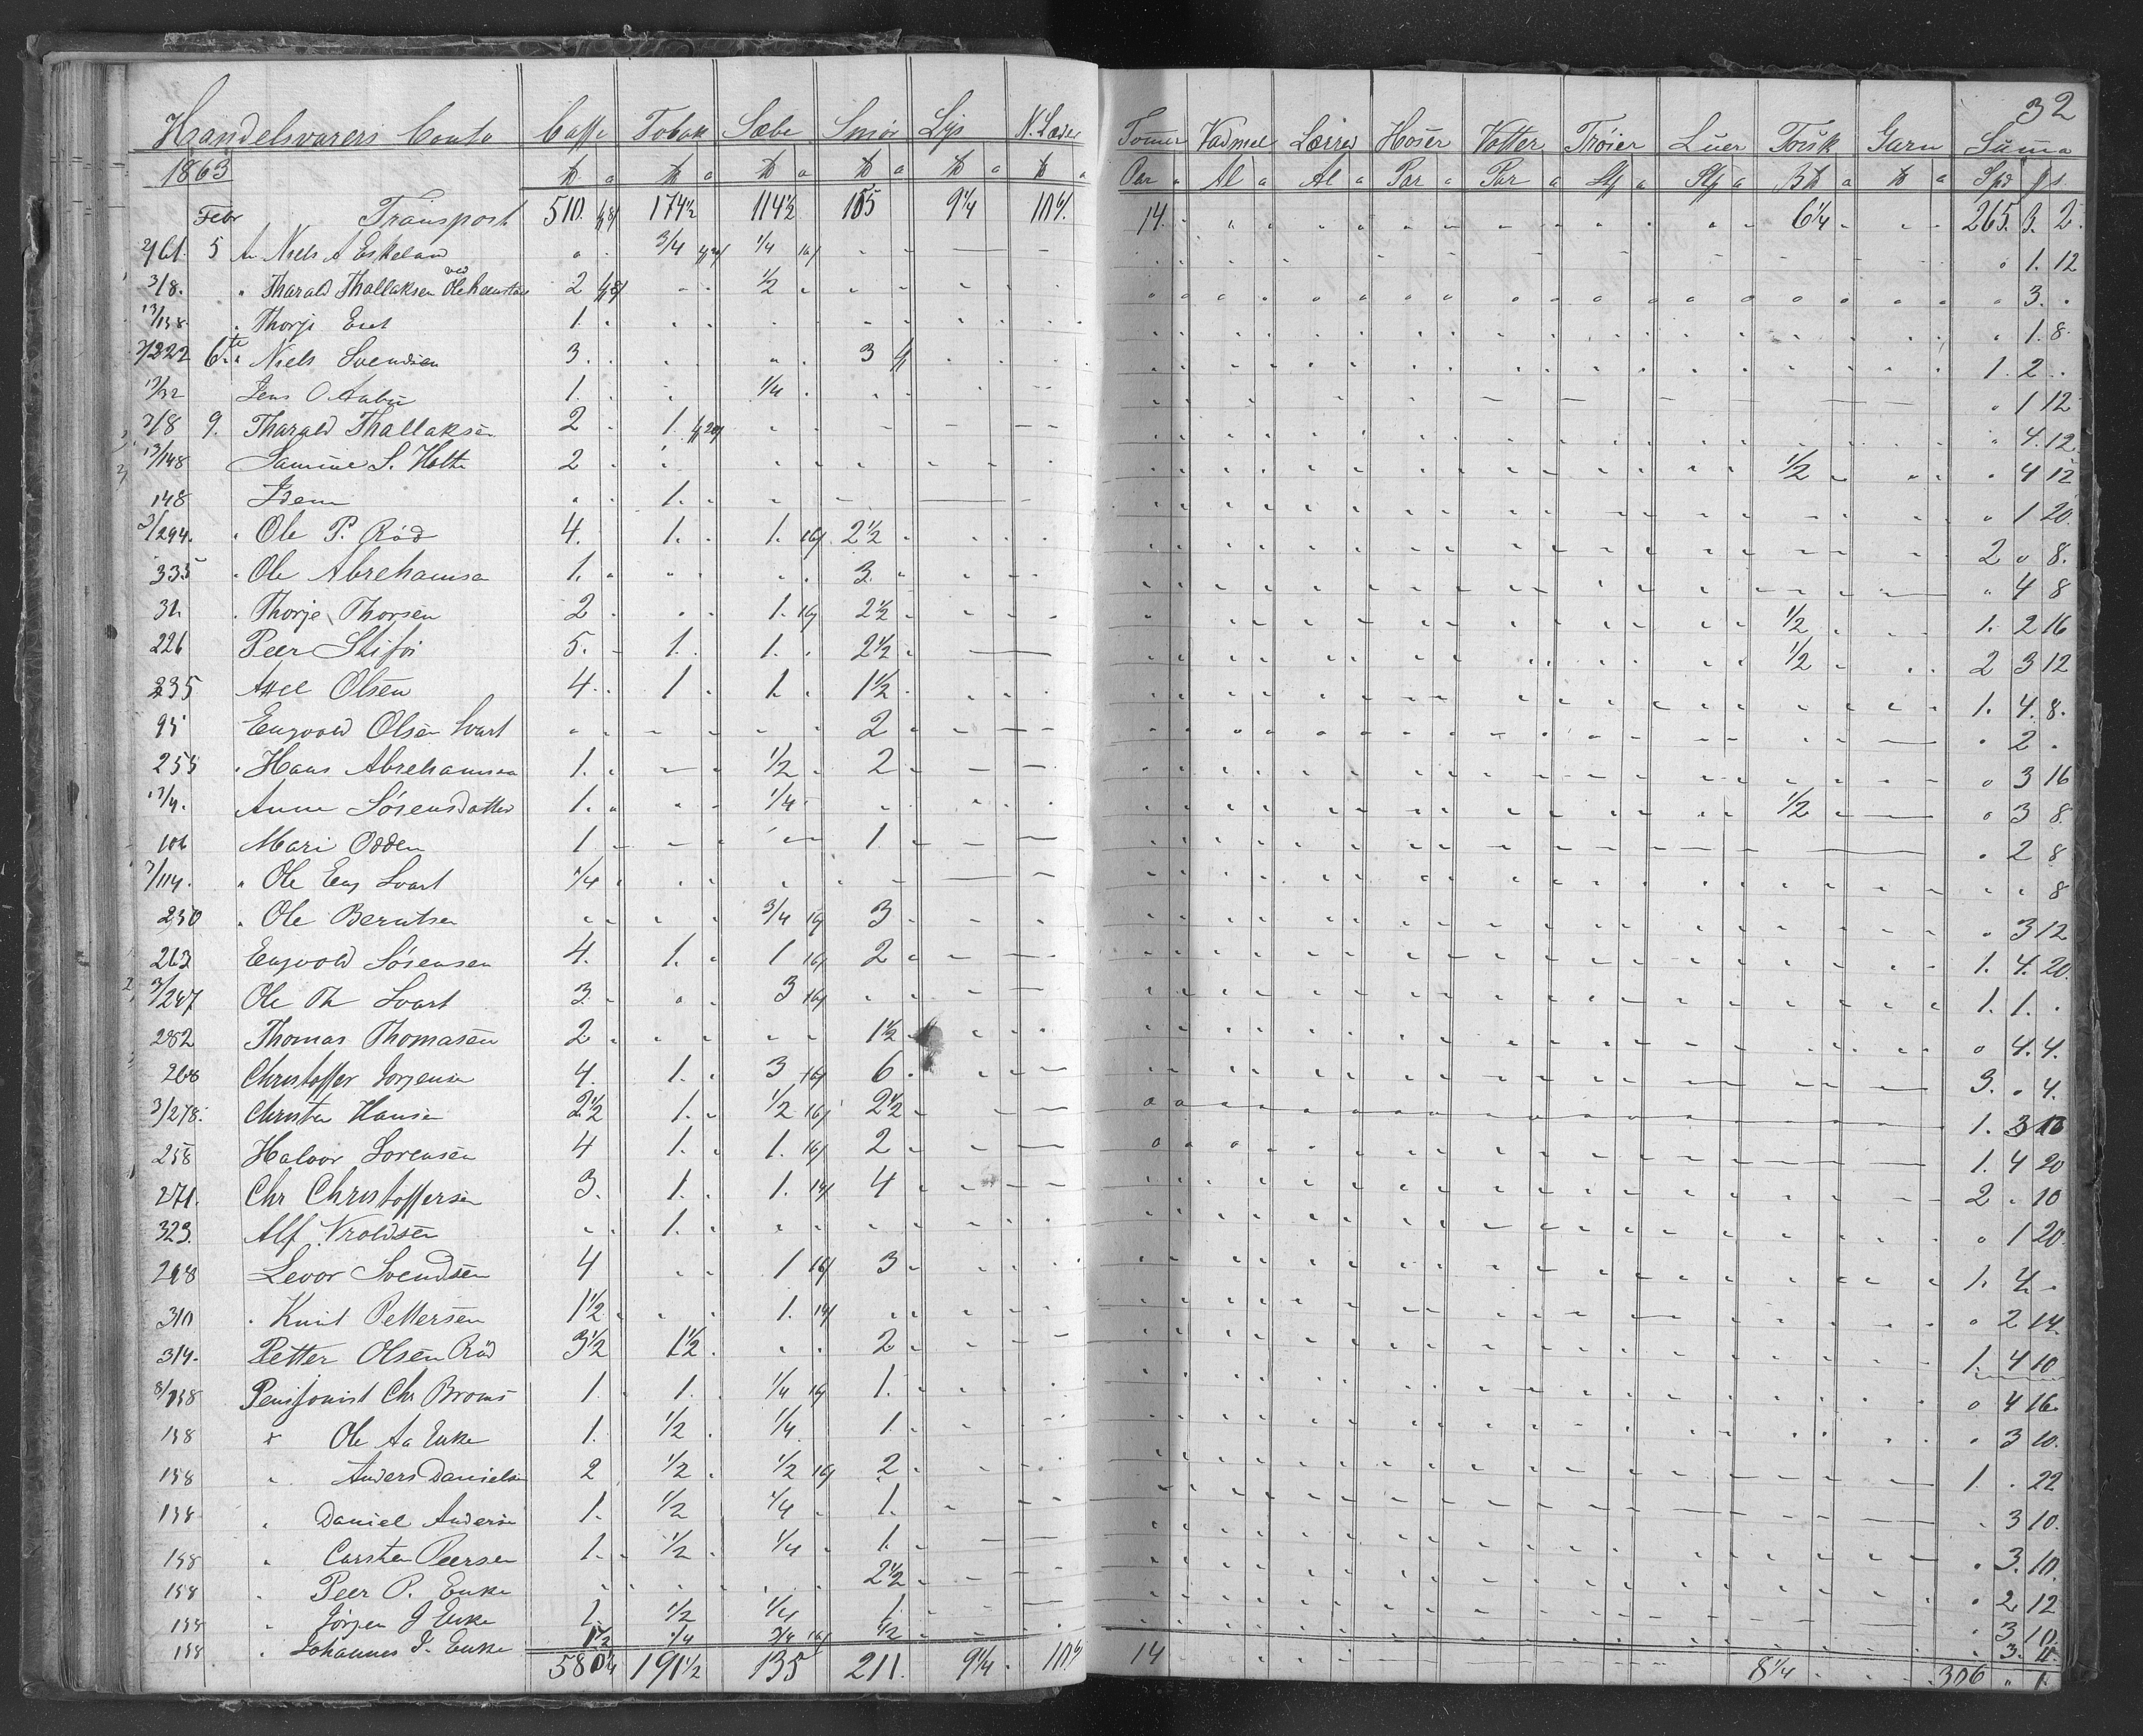 32
Handelsvarers Conto Caffe Tobak Sæbe Smør Lys N. Læder Tømmer Vadmel Lærred Hoser Votter Trøier Luer Torsk Garn Suma
1863 ℔ a ℔ a ℔ a ℔ a ℔ a ℔ a Par a Al a Al a Par a Par a Stk a Stk a B℔ a ℔ a Spd ß s
Febr Transport 510 174½ 114½ 165 9¼ 14 6¼ 265. 3. 2.
5 An Niels A Eskeland ¾ ¼ 16/ 1. 12
3/8. " Tharald Thallaksen ved Ole 2 ½ 3.
13/138 " Thorje 1. 1. 8.
3/222 6te " Niels Svendsen 3. 3 1. 2.
13/32 Jens O Aabü 1. ¼ 1 12
3/8 9. Tharald Thallaksen 2 1. 4. 12
13/148 S. Holte 2 ½ 4 12
148 Idem 1. 1 20.
3/294. " Ole P. Röd 4. 1. 1. 16/ 2½ 2 " 8.
335 " Ole Abrehamsen 1. 3. 4 8
31. " Thorje Thorsen 2 1. 16/ 2½ ½ 1. 2 16
226 Peer 5. 1. 1. 2½ ½ 2 3 12
235 Axel Olsen 4. 1 1. 1½ 1. 4. 8.
95 Engvold Olsen Svart 2 2
255 " Hans Abrehamsen 1. ½ 2 3 16
13/4. Anne Sörensdatter 1. ¼ ½ 3 8.
106 Mari Odden 1 1 2 8
3/114. " Ole Eng Svart ¼ 8
230 " Ole Berntsen ¾ 16/ 3 3 12
263 Engvold Sörensen 4. 1. 1 16/ 2 1. 4. 20.
3/247 Ole Th Svart 3. 3 16/ 1. 1.
282 Thomas Thomasen 2 1½ 4. 4.
268 Christoffer Jorjensen 4. 1. 3 16/ 6 3. " 4.
3/278. Christen Hansen 2½ 1. ½ 16/ 2½ 1. 3 10
258 Halvor Sorensen 4 1. 1. 16/ 2 1. 4 20
271. Chr Christoffersen 3. 1. 1. 14/ 4 2 " 10
323. Alf Vroldsen 1. 1 20.
298 Levor Svendsen 4 1 16/ 3 1. 4.
310 " Knut Pettersen 1½ 1. 14/ 2 14.
314. Petter Olsen Röd 3½ 1½ 2 1. 4 10
8/158 Pensjonist Chr Broms 1. 1. ¼ 16/ 1. 4 16.
158 " Ole Aa Enke 1. ½ ¼ 1. 3 10.
158 " Anders Danielsen 2 ½ ½ 16/ 2 1 " 22
158 " Daniel Andersen 1. ½ ¼ 1. 3 10.
158 " Carsten Peersen 1. ½ ¼ 1. 3. 10.
158 " Peer P. Enke 2½ 2 12
158 " Jörjen J Enke 1. ½ ¼ 1. 3 10.
158 " Johannes J. Enke 1½ ¼ ¾ 16/ ½ 3. 11.
580¼ 191½ 135 211. 9¼ 14 8¼ 306 " 1.